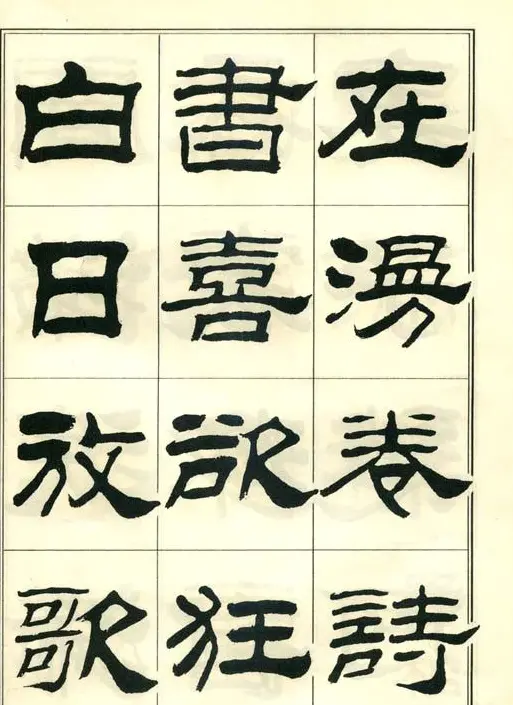 在漫卷詩
書喜欲狂
白日放歌